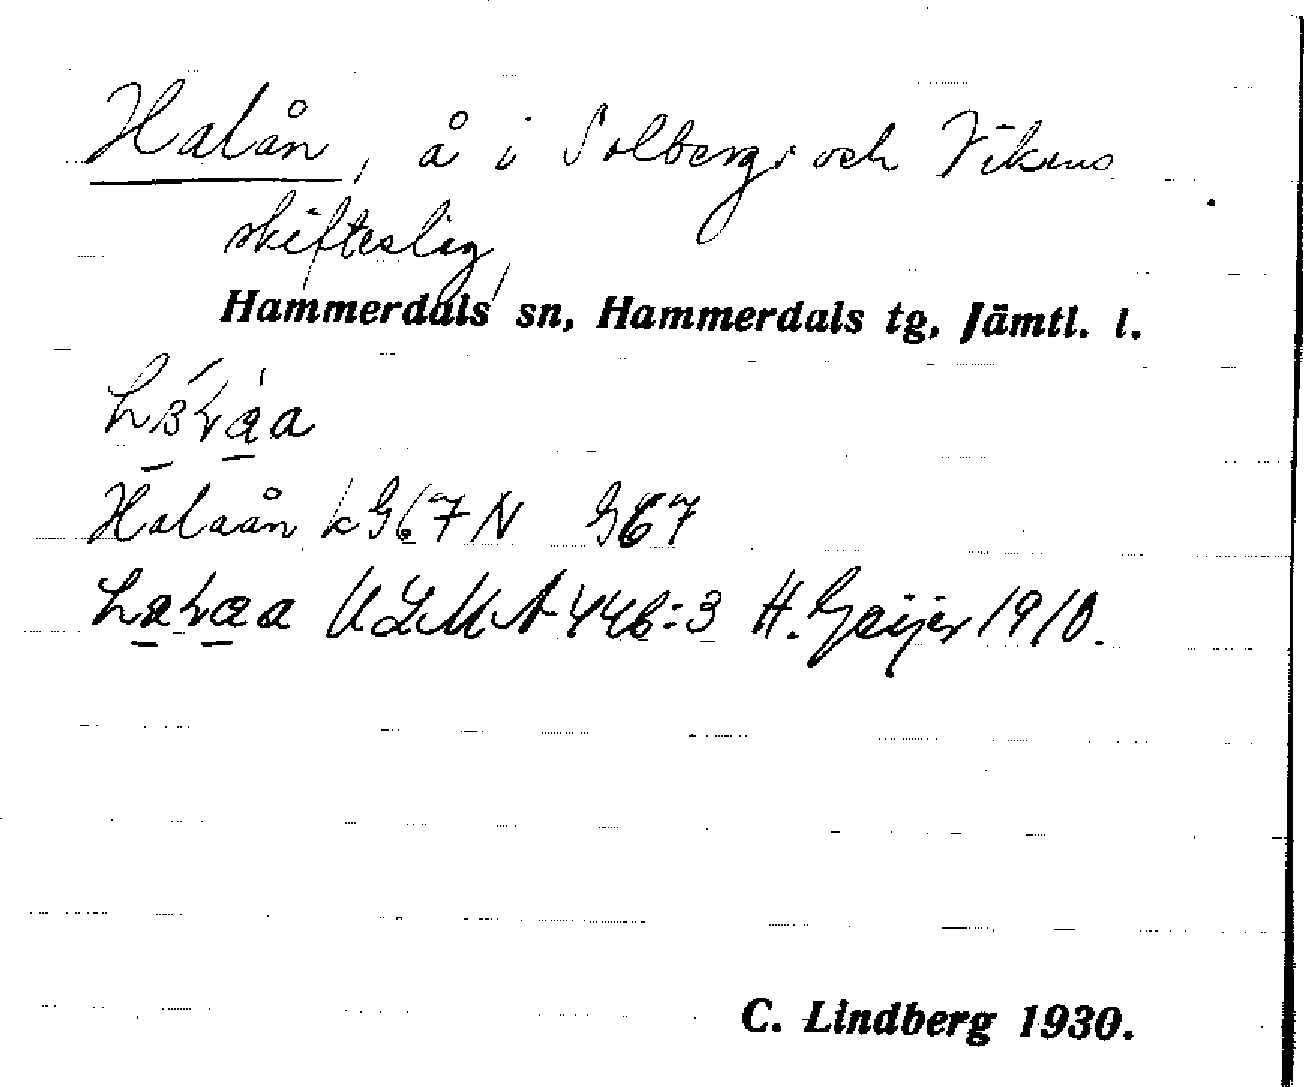 Halån, å i Solbergs och Vikens
skifteslag,
Hammerdals sn, Hammerdals tg, Jämtl. l.
Halaån kG67N G67
ULMA 446:3 H. Geijer 1910.
C. Lindberg 1930.